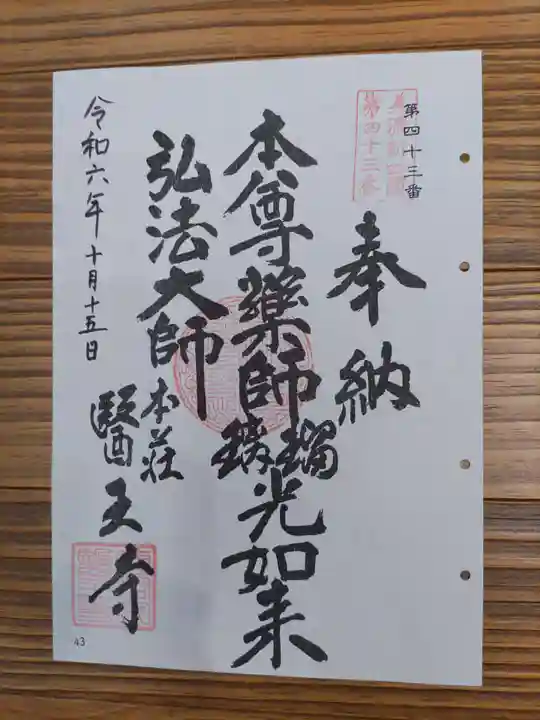 第四十三番
第四十三番
奉納
本尊薬師瑠璃光如来
弘法大師
本荘
醫王寺
令和六年十月十五日
43